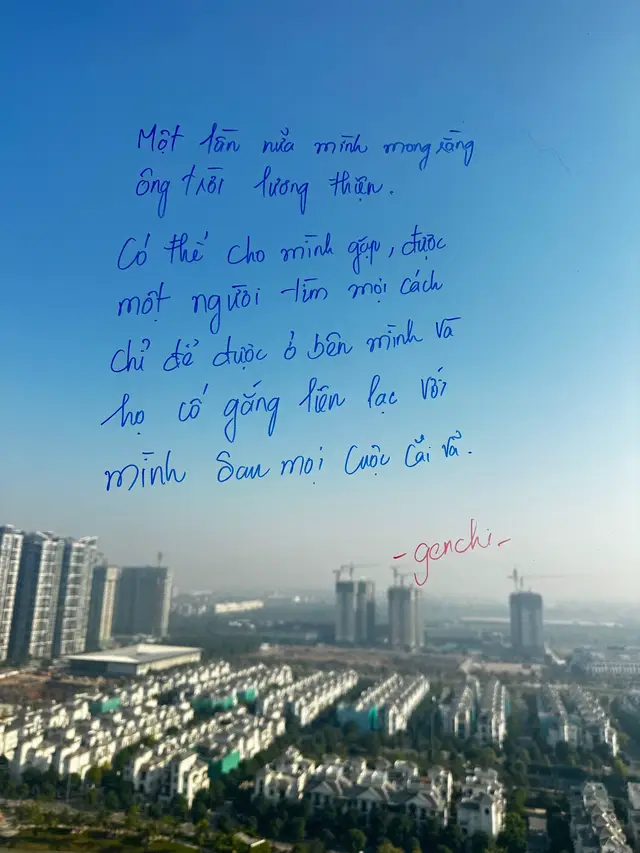 Một lần nữa mình mong rằng
ông trời lương thiện.
Có thể cho mình gặp, được
một người tìm mọi cách
chỉ để được ở bên mình và
họ cố gắng liên lạc với
mình sau mọi cuộc cãi vã.
-genchi-